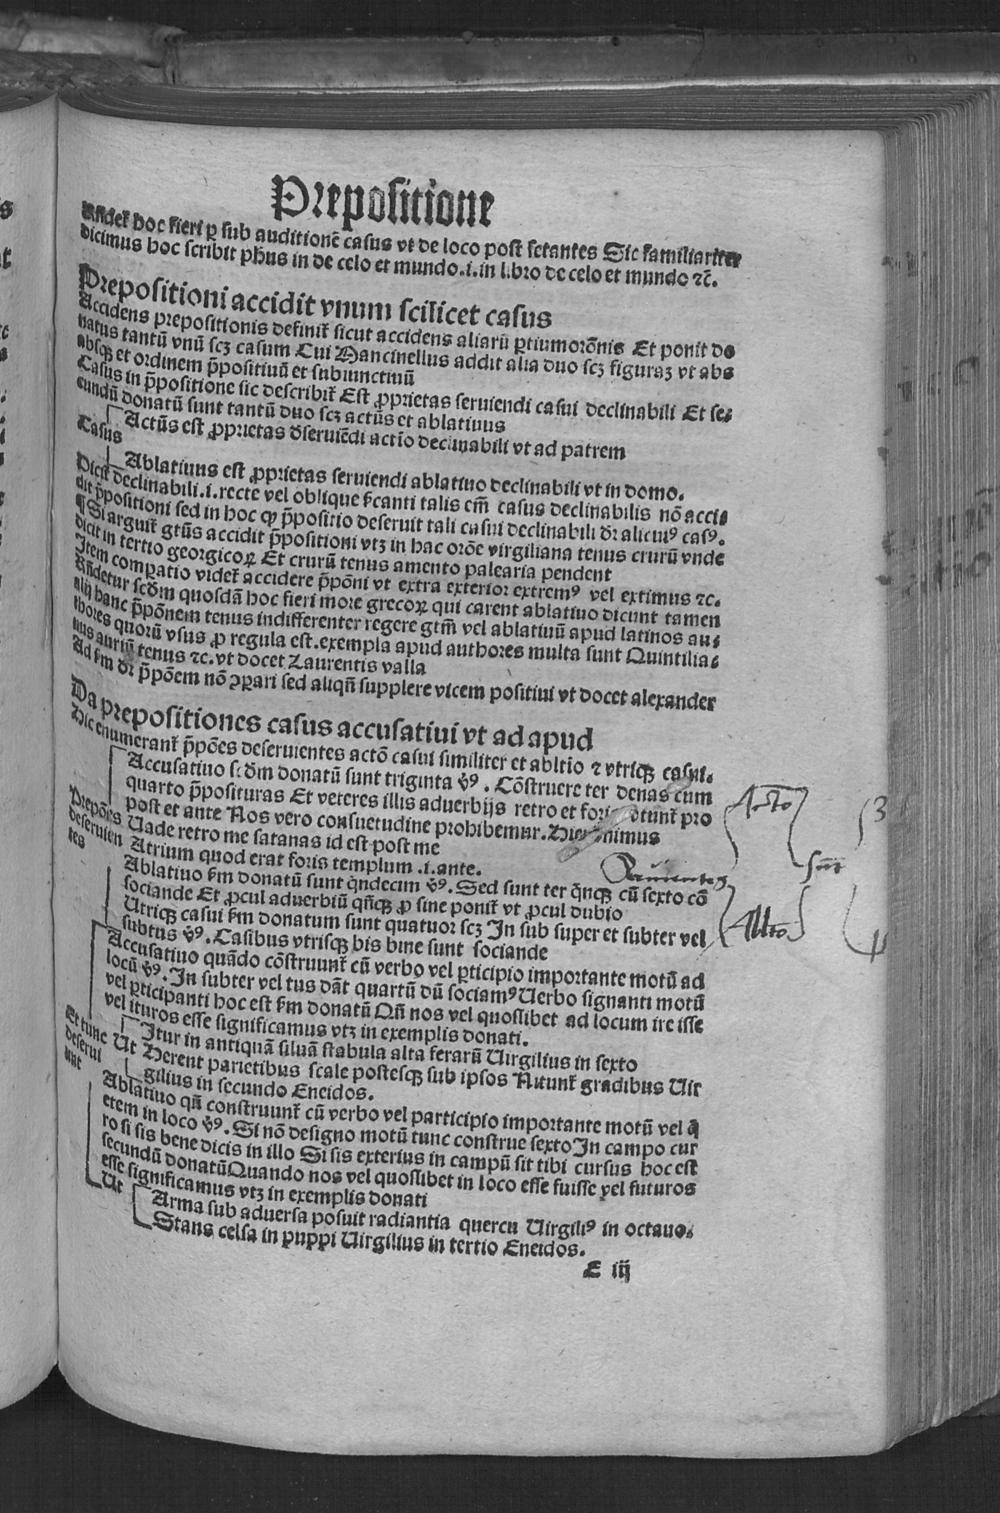 Prepositione
Rñdet̃ hoc fieri ꝑ sub auditionẽ casus vt de loco post sctantes Sic familiariter
dicimus hoc scribit phus in de celo et mundo .i. in libro de celo et mundo ⁊c̃.
Prepositioni accidit vnum scilicet casus
Accidens prepositionis definit̃ sicut accidens aliarũ ꝑtium orõnis Et ponit do
natus tantũ vnũ scꝫ casum Cui Mancinellus addit alia duo scꝫ figuraꝫ vt abs
absqꝫ et ordinem p̃positiuũ et subiunctiuũ
Casus in p̃positione sic describit̃ Est ꝓprietas seruiendi casui declinabili Et se⸗
cundũ donatũ sunt tantũ duo scꝫ actũs et ablatiuus
Actũs est ꝓprietas dseruiẽdi actĩo declinabili vt ad patrem
Casus
Ablatiuus est ꝓprietas seruiendi ablatiuo declinabili vt in domo.
Dicit̃ declinabili .i. recte vel oblique f̃canti talis cm̃ casus declinabilis nõ acci⸗
dit p̃positioni sed in hoc ꝙ p̃positio deseruit tali casui declinabili dr̃ alicuiꝰ casꝰ.
¶ Si arguit̃ gtũs accidit p̃positioni vtꝫ in hac orõe virgiliana tenus crurũ vnde
dicit in tertio georgicoꝝ Et crurũ tenus amento palearia pendent
Item comꝑatio videt̃ accidere p̃põni vt extra exterior extremꝰ vel extimus ⁊c.
Rñdetur scd̃m quosdã hoc fieri more grecoꝝ qui carent ablatiuo dicunt tamen
alij hanc p̃põnem tenus indifferenter regere gtm̃ vel ablatiuũ apud latinos au⸗
thores quorũ vsus ꝓ regula est. exempla apud authores multa sunt Quintilia⸗
nus auriũ tenus ⁊c. vt docet Laurentis valla
Ad f̃m dr̃ p̃põem nõ ꝯꝑari sed aliqñ supplere vicem positiui vt docet alexander
Da prepositiones casus accusatiui vt ad apud
Hic enumerant̃ p̃pões deseruientes actõ casui similiter et abltĩo ⁊ vtriqꝫ casui.
Accusatiuo scd̃m donatũ sunt triginta ꝟꝰ. Cõstruere ter denas cum
quarto p̃posituras Et veteres illis aduerbijs retro et foris dtunt̃ pro
post et ante Nos vero consuetudine prohibemur. Hieronimus
Prepões Vade retro me satanas id est post me
deseruien Atrium quod erat foris templum .i. ante.
tes
Ablatiuo f̃m donatũ sunt q̃ndecim ꝟꝰ. Sed sunt ter q̃nqꝫ cũ sexto cõ
sociande Et ꝓcul aduerbiũ qñqꝫ ꝓ sine ponit̃ vt ꝓcul dubio
Utriqꝫ casui f̃m donatum sunt quatuor scꝫ In sub super et subter vel
subtus ꝟꝰ. Casibus vtrisqꝫ bis bine sunt sociande
Accusatiuo quãdo cõstruunt̃ cũ verbo vel ꝑticipio importante motũ ad
locũ ꝟꝰ. In subter vel tus dãt quartũ dũ sociamꝰ Uerbo signanti motũ
vel ꝑticipanti hoc est f̃m donatũ Qũ nos vel quoslibet ad locum ire isse
vel ituros esse significamus vtꝫ in exemplis donati.
Itur in antiquã siluã stabula alta ferarũ Uirgilius in sexto
Et tunc Ut Herent parietibus scale postesqꝫ sub ipsos Nitunt̃ gradibus Uir
deserui gilius in secundo Eneidos.
unt
Ablatiuo qñ construunt̃ cũ verbo vel participio importante motũ vel q̃
etem in loco ꝟꝰ. Si nõ designo motũ tunc construe sexto In campo cur
ro si sis bene dicis in illo Si sis exterius in campũ sit tibi cursus hoc est
secundũ donatũ Quando nos vel quoslibet in loco esse fuisse vel futuros
esse significamus vtꝫ in exemplis donati
Ut Arma sub aduersa posuit radiantia quercu Uirgiliꝰ in octauo.
Stans celsa in puppi Uirgilius in tertio Eneidos.
E iij
Acto
3
sunt
Ablto